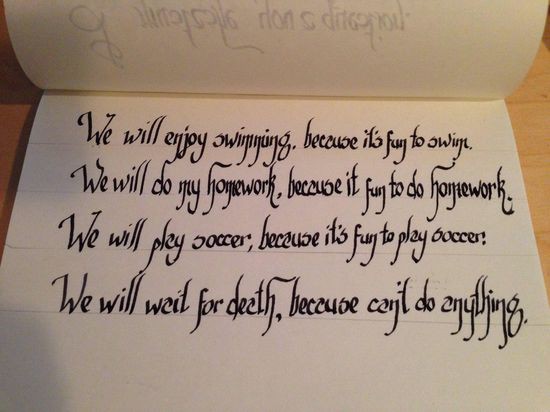 We will enjoy swimming, because it's fun to swim.
We will do my homework, because it fun to do homework.
We will play soccer, because it's fun to play soccer.
We will wait for death, because can't do anything.